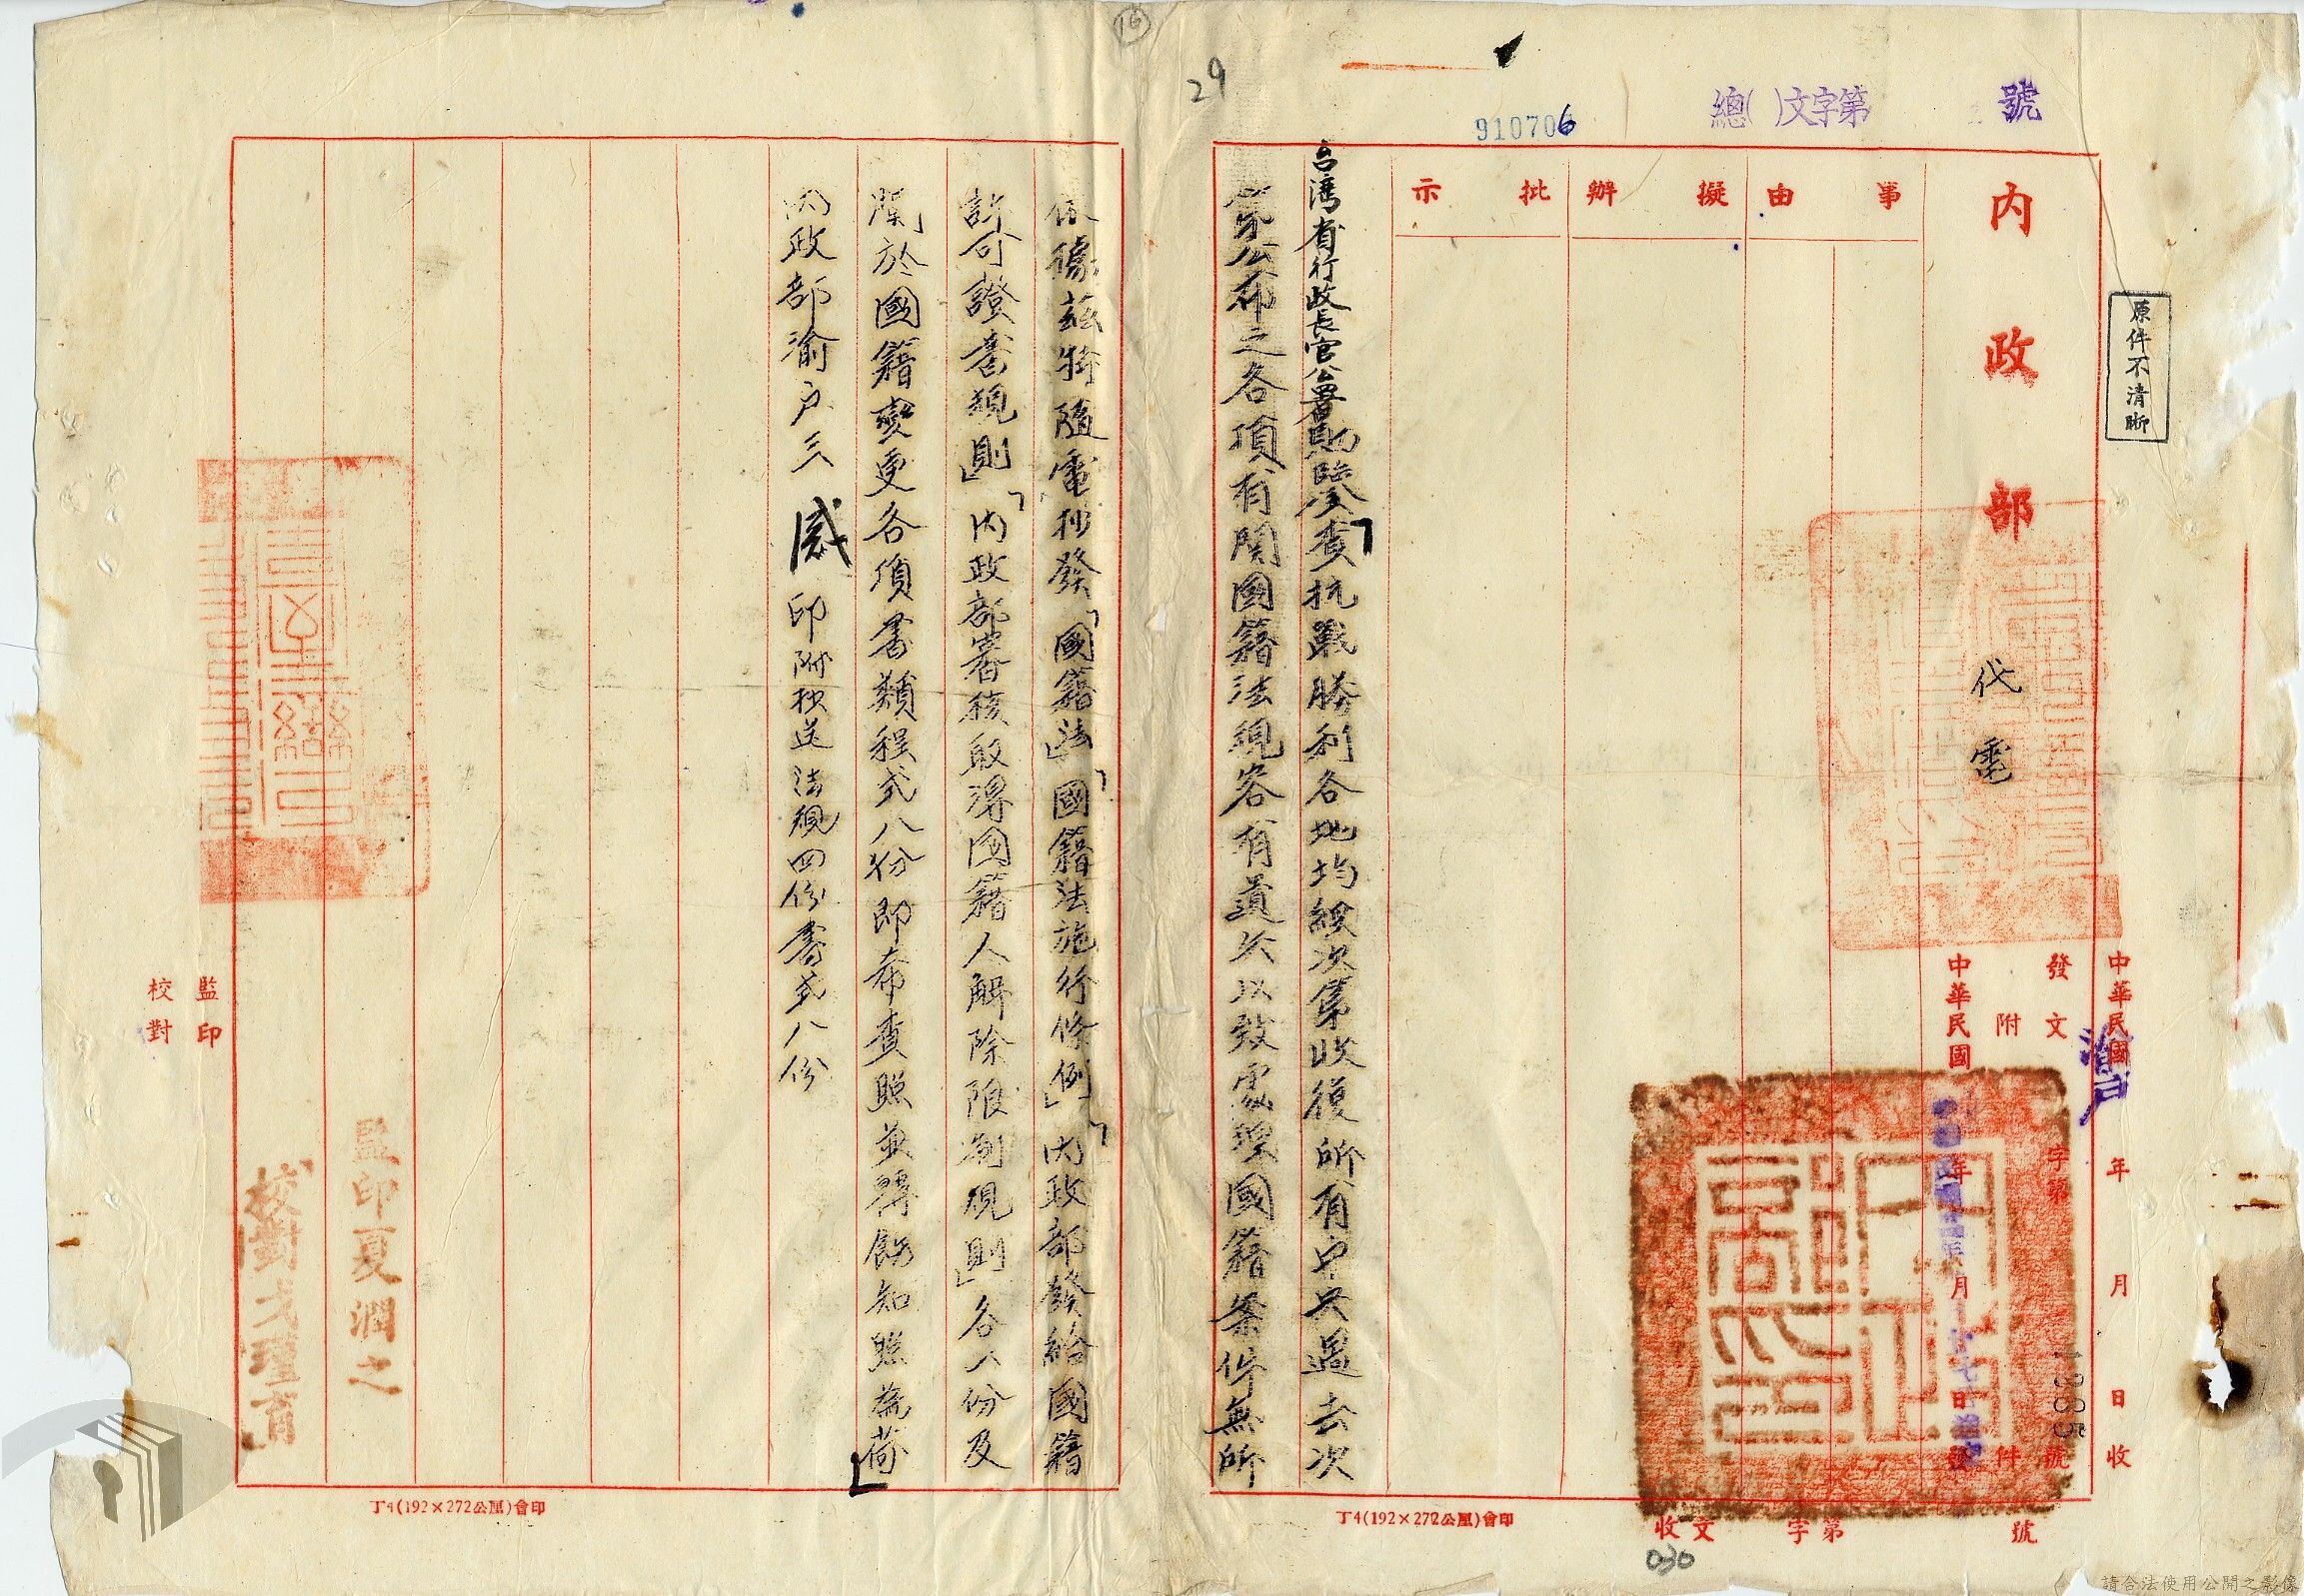 16
29
910706
總( )文字第 號
原件不清晰
內政部
代電
事由
擬辦
批示
中華民國 年 月 日收
渝戶
發文 字第 1385 號
附 件
中華民國 年 月 日發
台湾省行政長官公署勛鑒查抗戰勝利各地均經次第收復所有中央過去次
第公布之各項有関國籍法規容有遺失以致處理國籍案件無所
依據茲特隨電抄發「國籍法」「國籍法施行條例」「內政部發給國籍
許可證書規則」「內政部審核取得国籍人解除限制規則」各一份及
關於國籍變更各項書類程式八份即希查照並轉飭知照為荷
內政部渝戶三 感 印附抄送法規四份書式八份
監印夏潤之
監印
校對
丁4(192×272公厘)會印
丁4(192×272公厘)會印
收文 字第 號
030
請合法使用公開之影像